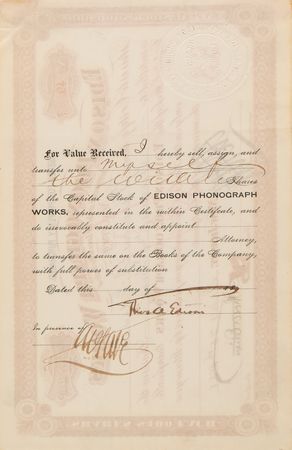 For Value Received, I hereby sell, assign, and
transfer unto Myself
the within Shares
of the Capital Stock of EDISON PHONOGRAPH
WORKS, represented in the within Certificate, and
do irrevocably constitute and appoint
Attorney,
to transfer the same on the Books of the Company,
with full power of substitution
Dated this day of
Thos A Edison
In presence of